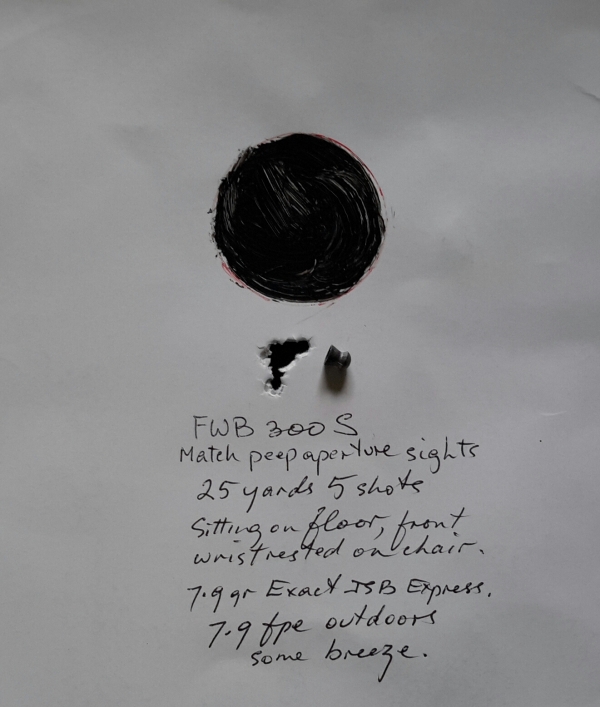 FWB 300 S
Match peep aperture sights
25 yards 5 shots
Sitting on floor, front
wrist rested on chair.
7.9 gr Exact JSB Express.
7.9 fpe outdoors
some breeze.